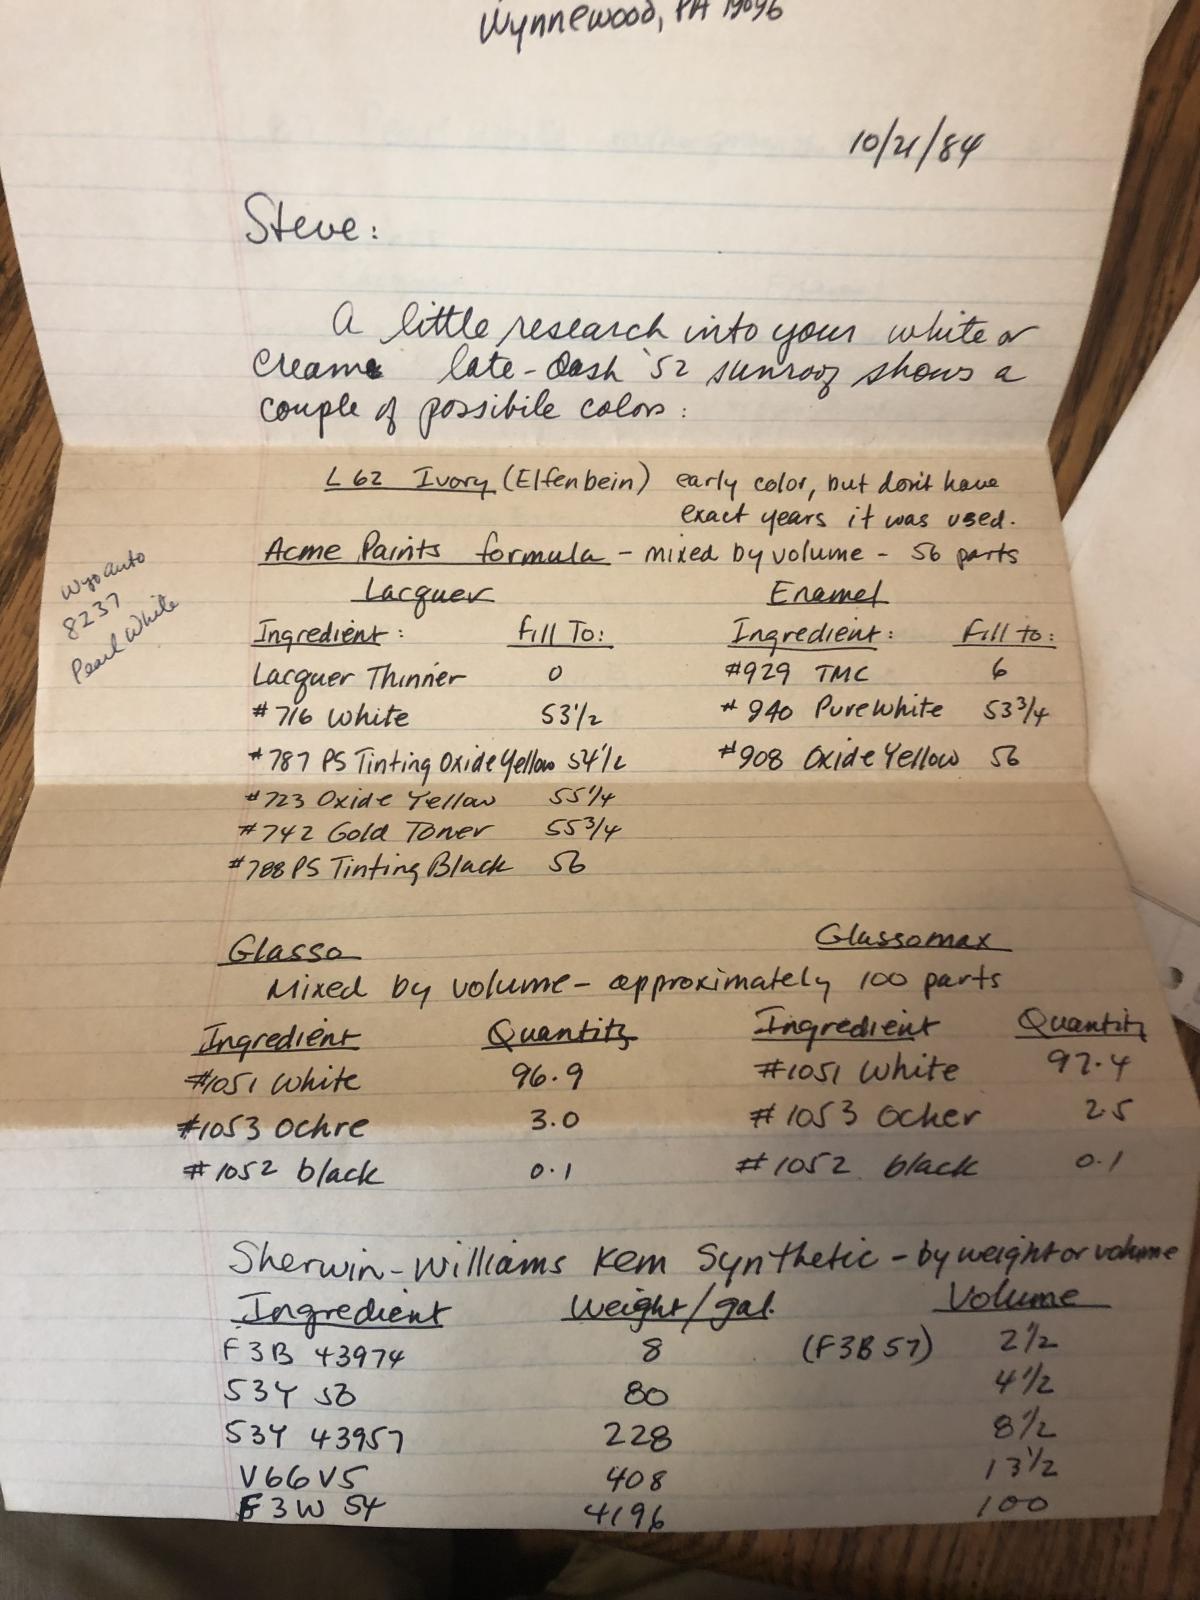 Wynnewood, PA 19096
10/21/84
Steve:
A little research into your white or
cream late-dash '52 sunroof shows a
couple of possibile colors:
L 62 Ivory (Elfenbein) early color, but don't have
exact years it was used.
Acme Paints formula - mixed by volume - 56 parts
Wyo auto
8237
Pearl White
Lacquer Enamel
Ingredient: Fill To: Ingredient: Fill to:
Lacquer Thinner 0 #929 TMC 6
#716 White 53 1/2 #940 Pure White 53 3/4
#787 PS Tinting Oxide Yellow 54 1/2 #908 Oxide Yellow 56
#723 Oxide Yellow 55 1/4
#742 Gold Toner 55 3/4
#788 PS Tinting Black 56
Glasso Glassomax
Mixed by volume - approximately 100 parts
Ingredient Quantity Ingredient Quantity
#1051 White 96.9 #1051 White 97.4
#1053 Ochre 3.0 #1053 Ocher 2.5
#1052 black 0.1 #1052 black 0.1
Sherwin-Williams Kem Synthetic - by weight or volume
Ingredient Weight/gal. Volume
F3B 43974 8 (F3B 57) 2 1/2
S3Y 80 4 1/2
S3Y 43957 228 8 1/2
V66V5 408 13 1/2
F3W 54 4196 100